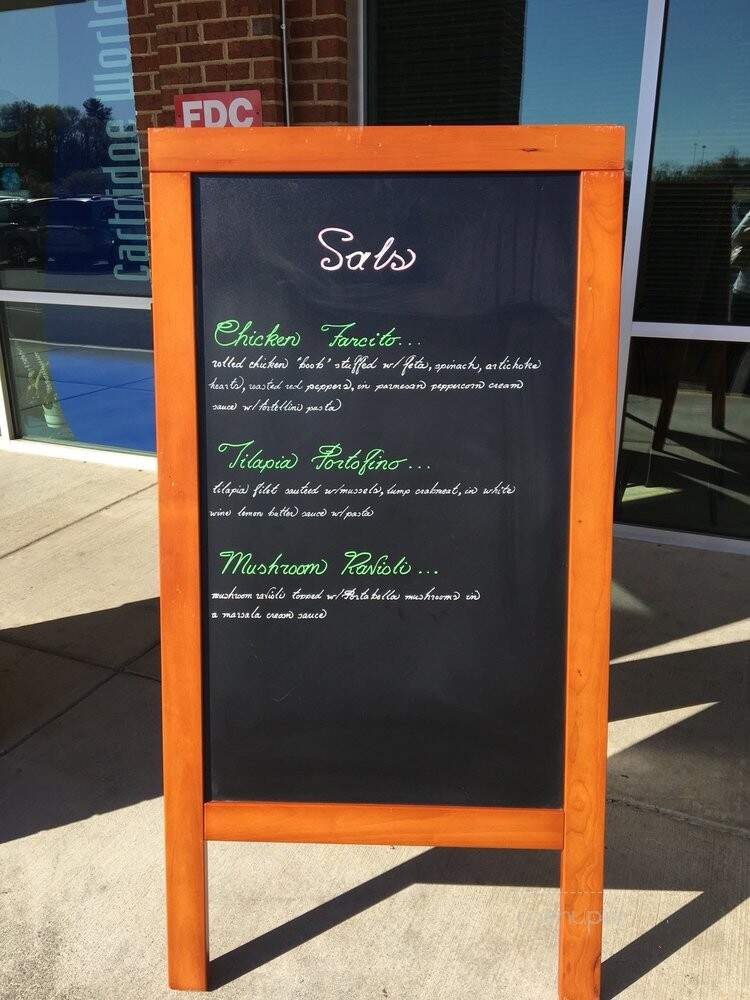 Cartridge World
FDC
Sals
Chicken Farcito...
rolled chicken "boob" stuffed w/ feta, spinach, artichoke
hearts, roasted red peppers, in parmesan peppercorn cream
sauce w/ tortellini pasta
Tilapia Portofino...
tilapia filet sauteed w/ mussels, lump crabmeat, in white
wine lemon butter sauce w/ pasta
Mushroom Ravioli...
mushroom ravioli topped w/ Portabella mushrooms in
a marsala cream sauce
menupix